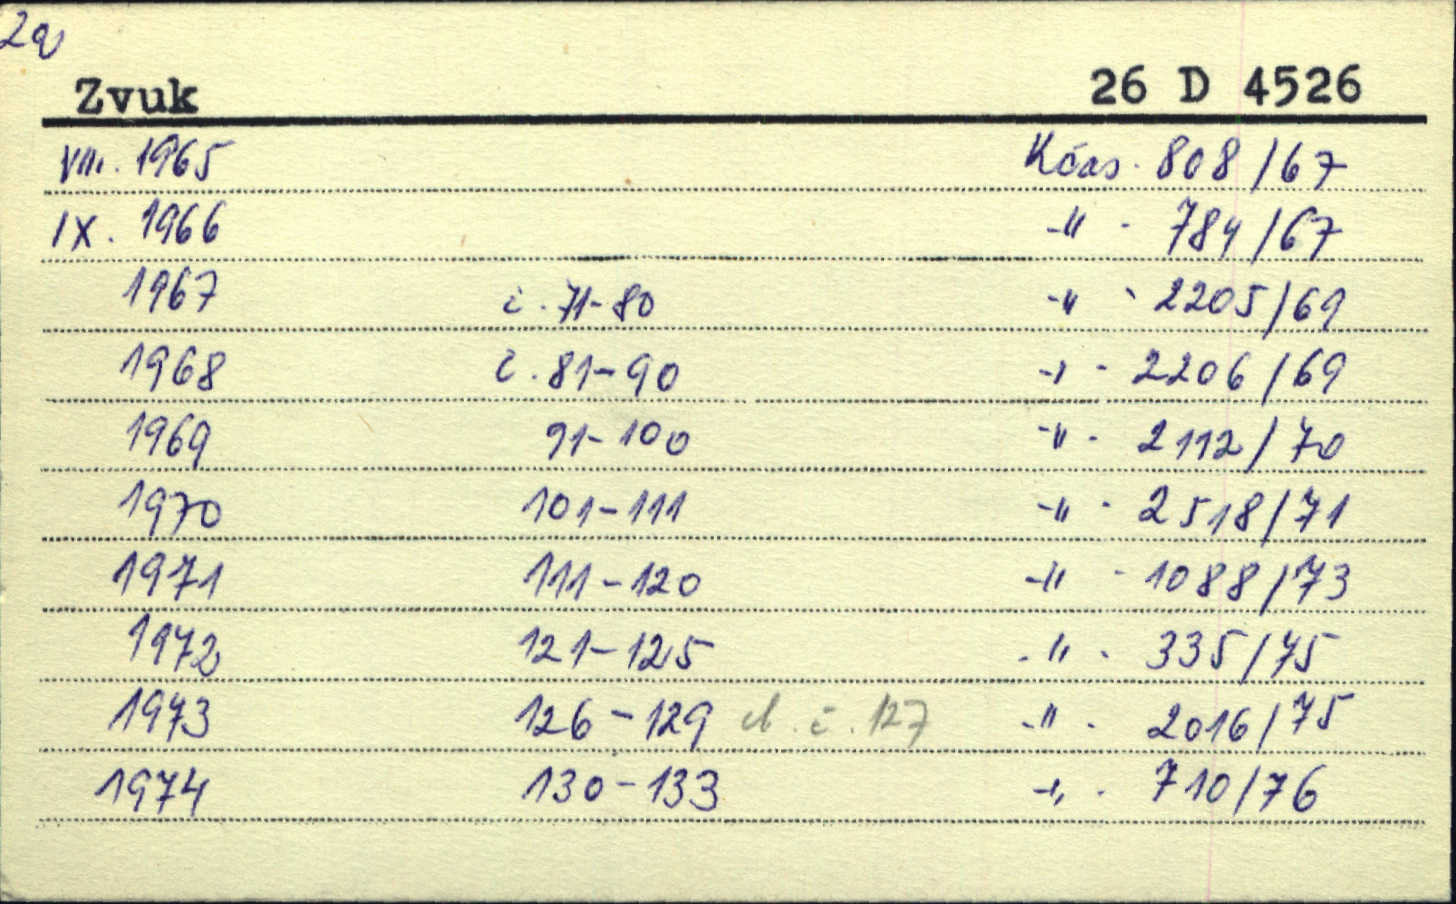 2a
Zvuk 26 D 4526
VIII. 1965 Kčas. 808/67
IX. 1966 -"- 784/67
1967 č. 71-80 -"- 2205/69
1968 č. 81-90 -"- 2206/69
1969 91-100 -"- 2112/70
1970 101-111 -"- 2518/71
1971 111-120 -"- 1088/73
1972 121-125 -"- 335/75
1973 126-129 ch. č. 127 -"- 2016/75
1974 130-133 -"- 710/76